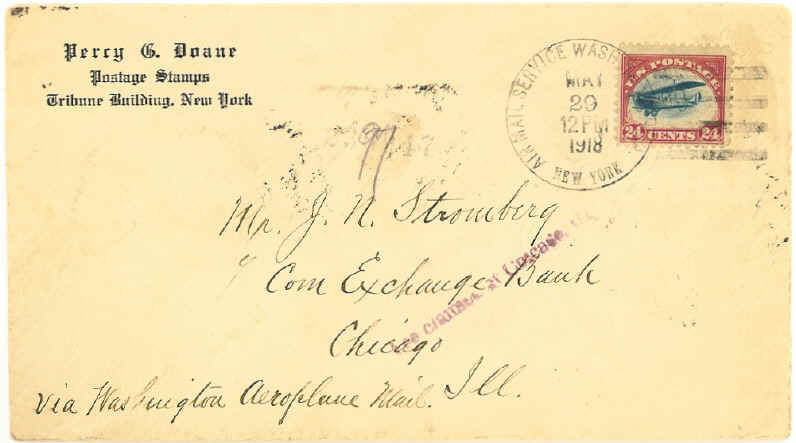 Percy G. Doane
Postage Stamps
Tribune Building, New York
AIR MAIL SERVICE WASH
NEW YORK
MAY
29
12 PM
1918
U.S. POSTAGE
24 CENTS 24
Mr. J. N. Stromberg
c/o Corn Exchange Bank
Chicago
Ill.
via Washington Aeroplane Mail.
at Chicago,